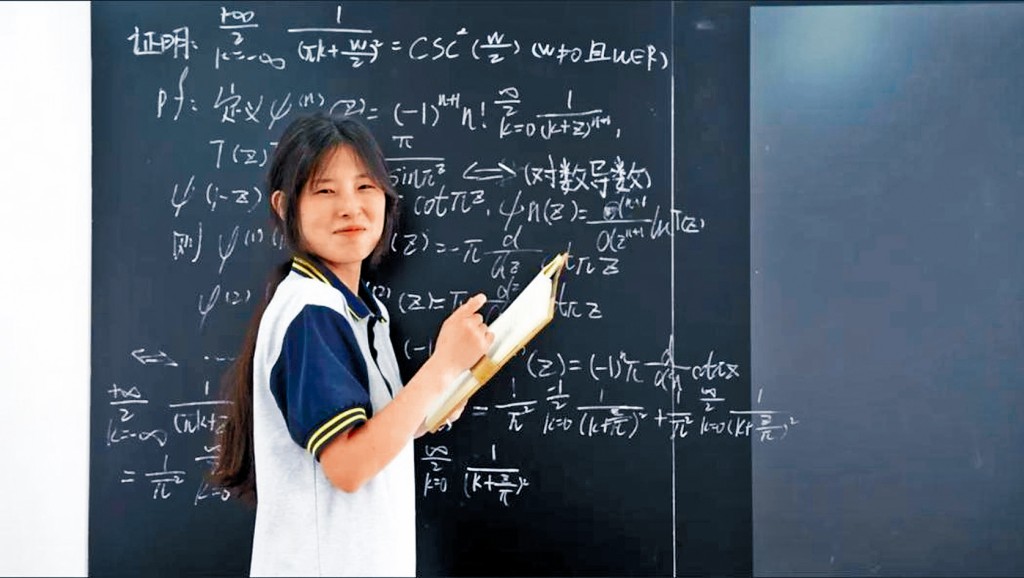 证明: +∞ Σ k=-∞ 1/(πk+w/2)² = CSC²(w/2) (w≠0且w∈R)
pf: 定义ψ⁽ⁿ⁾(z)=(-1)ⁿ⁺¹n! ∞ Σ k=0 1/(k+z)ⁿ⁺¹,
Γ(z) π/sinπz ⟺ (对数导数)
ψ(1-z) cotπz, ψn(z)= dⁿ⁺¹/dzⁿ⁺¹ lnΓ(z)
则 ψ⁽¹⁾ (z)=-π d/dz πz
ψ⁽²⁾ (z)=π πz
⟺ ...... (-1) (z)=(-1)ⁿπ d cotπz
+∞ Σ k=-∞ 1/(πk+ = 1/π² -1 Σ k=0 1/(k+z/π)² + 1/π² ∞ Σ k=0 1/(k+z/π)²
= 1/π² ∞ Σ k=0 ∞ Σ k=0 1/(k+z/π)²